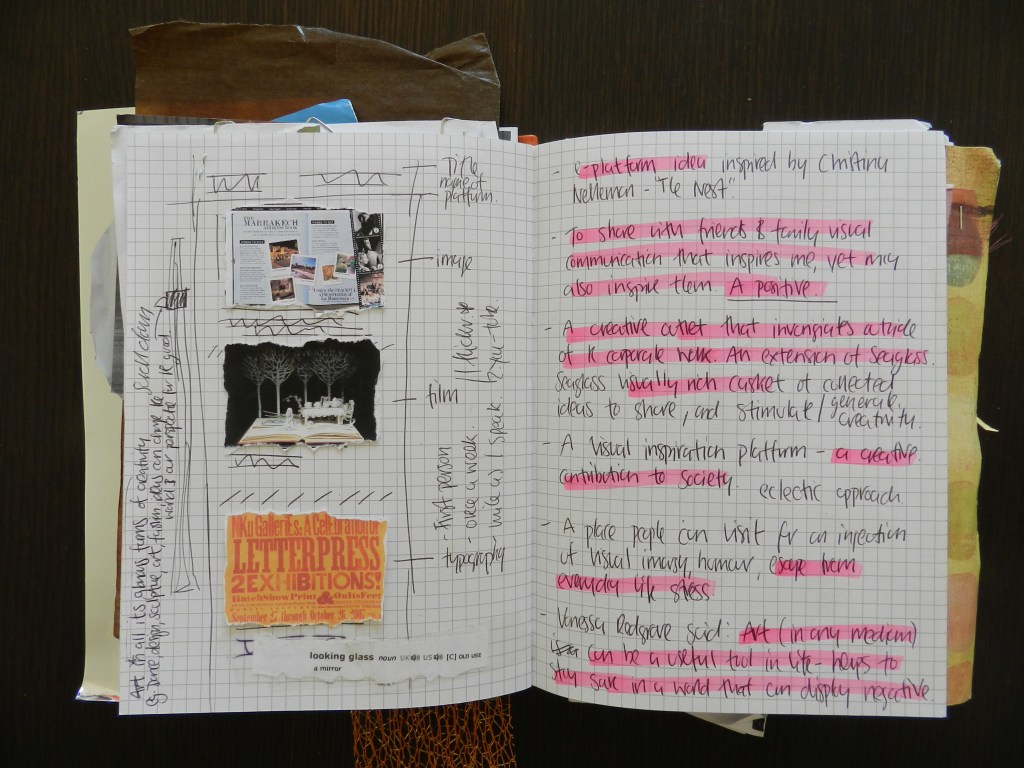 Title
name of
platform.
THE
MARRAKECH
image
film
NKU GALLERIES: A Celebration of
LETTERPRESS
2 EXHIBITIONS!
Hatch Show Print & Oults Feet
September through October 26, 2007
typography
looking glass noun UK US [C] OLD USE
a mirror
- First person
- once a week.
- write as I speak.
Art in all its various forms of creativity
Eg Dance, design, sculpture, art, fashion, ideas can change the
world & our perspective for the good
- e-platform idea inspired by Christiny
Nelleman - "The Nest".
- To share with friends & family visual
communication that inspires me, yet may
also inspire them. A positive.
- A creative outlet that invigorates outside
of the corporate walk. An extension of Seaglass.
Seaglass usually rich casket of collected
ideas to share, and stimulate/generate
creativity.
- A Visual inspiration platform - a creative
contribution to society eclectic approach
- A place people can visit for an injection
of visual imagery, humour, escape from
everyday life stress
- Vanessa Redgrave said: Art (in any medium)
can be a useful tool in life - helps to
stay sane in a world that can display negative.